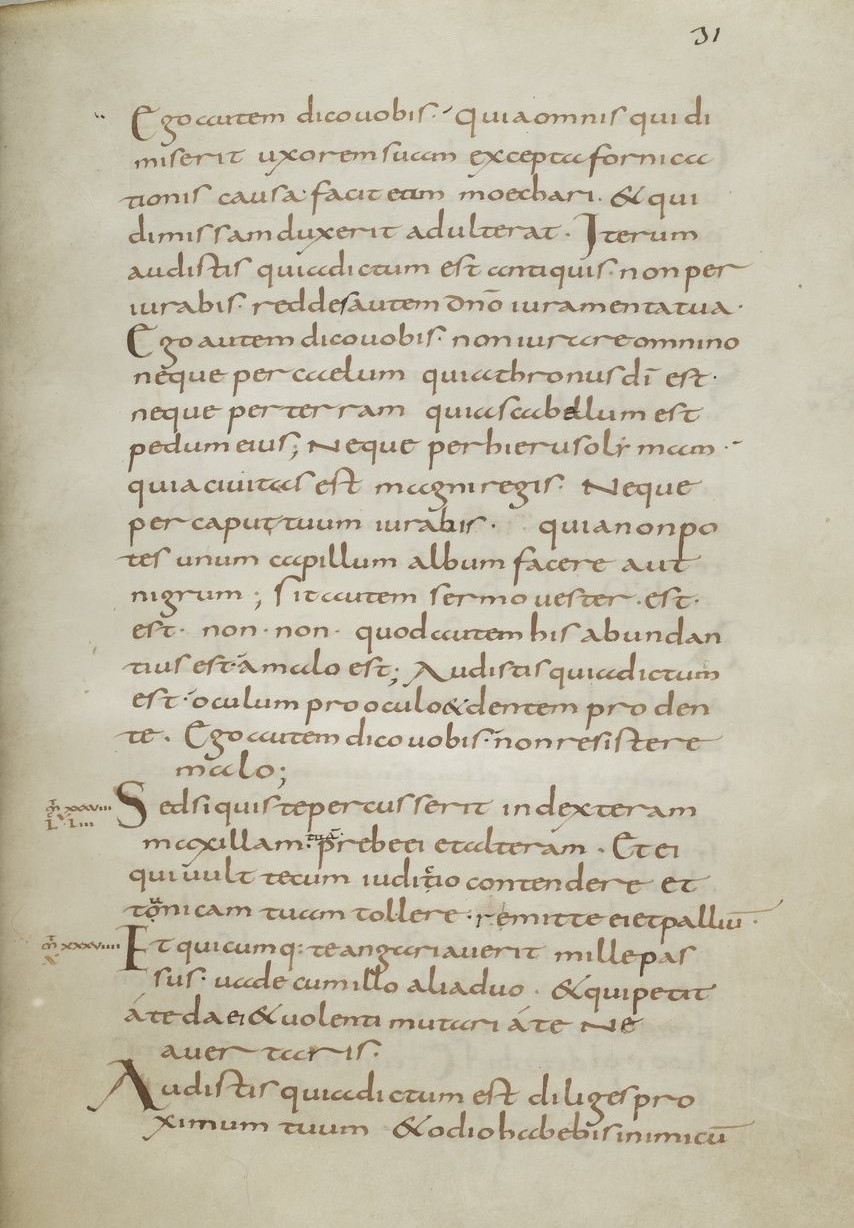 31
Ego autem dico uobis · Quia omnis qui di
miserit uxorem suam excepta fornica
tionis causa · facit eam moechari · & qui
dimissam duxerit adulterat · Iterum
audistis quia dictum est antiquis · non per
iurabis · reddes autem dn̄o iuramenta tua ·
Ego autem dico uobis · non iurare omnino
neque per caelum quia thronus dī est ·
neque per terram quia scabellum est
pedum eius; Neque per hierusolymam ·
quia ciuitas est magni regis · Neque
per caput tuum iurabis · quia non po
tes unum capillum album facere aut
nigrum ; sit autem sermo uester · est ·
est · non · non · quod autem his abundan
tius est · á malo est; Audistis quia dictum
est · oculum pro oculo & dentem pro den
te . Ego autem dico uobis · non resistere
malo;
Sed si quis te percusserit in dexteram
maxillam · tuā · prebe ei et alteram · Et ei
qui uult tecum iuditio contendere et
tonicam tuam tollere · remitte ei et palliū ·
Et quicumq: te angariauerit mille pas
sus · uade cum illo alia duo · & qui petit
áte da ei & uolenti mutuari áte Ne
auertaris ·
Audistis quia dictum est diliges pro
ximum tuum & odio habebis inimicū